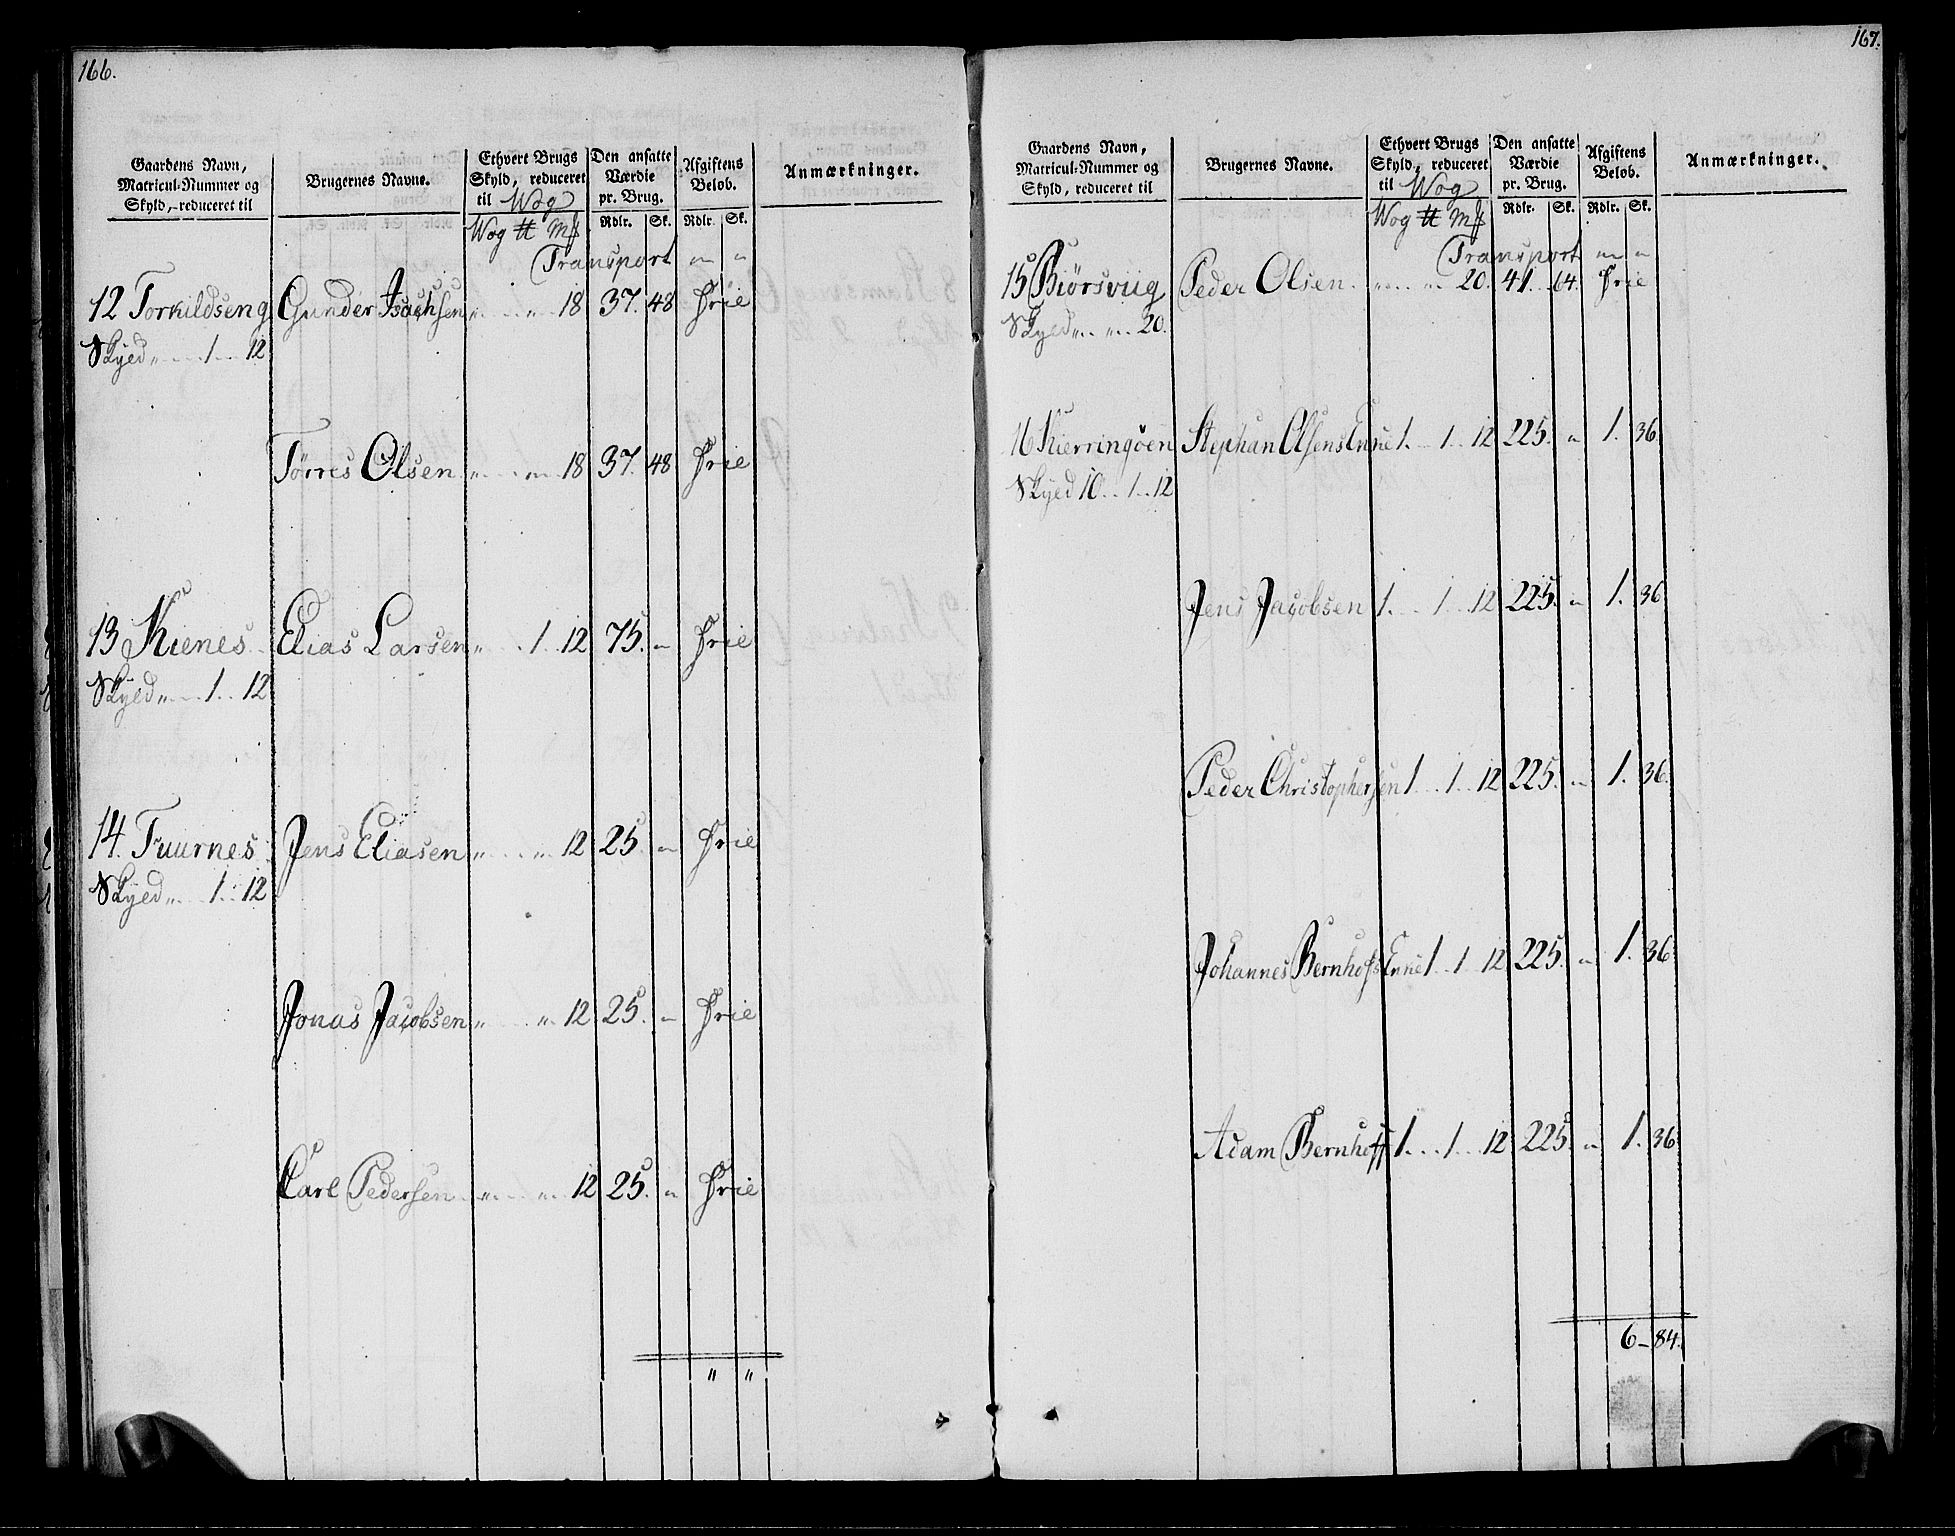 166.
Gaardens Navn, Matricul-Nummer og Skyld, reduceret til
Brugernes Navne.
Ethvert Brugs Skyld, reduceret til Wog
Den ansatte Værdie pr. Brug.
Afgiftens Beløb.
Anmærkninger.
Wog ℔ Mƒ Rdlr. Sk. Rdlr. Sk.
Transport „ „
12 Torkildseng Gunder Isachsen „ „ 18 37. 48 Frie
Skyld „ 1 12
Tørres Olsen „ „ 18 37. 48 Frie
13 Kienes Elias Larsen „ 1 12 75. „ Frie
Skyld „ 1 12
14. Tuurnes Jens Eliasen „ „ 12 25. „ Frie
Skyld „ 1 12
Jonas Jacobsen „ „ 12 25. „ Frie
Carl Pedersen „ „ 12 25. „ Frie
„ „
167.
Gaardens Navn, Matricul-Nummer og Skyld, reduceret til
Brugernes Navne.
Ethvert Brugs Skyld, reduceret til Wog
Den ansatte Værdie pr. Brug.
Afgiftens Beløb.
Anmærkninger.
Wog ℔ Mƒ Rdlr. Sk. Rdlr. Sk.
Transport „ „
15 Biørsviig Peder Olsen „ „ 20. 41. 64. Frie
Skyld „ „ 20.
16 Kierringøen Stephan Olsens Enke 1. 1 12 225. „ 1. 36.
Skyld 10 1 12
Jens Jacobsen 1. 1 12 225. „ 1. 36
Peder Christophersen 1 1 12 225. „ 1. 36.
Johannes Bernhofs Enke 1 1 12 225. „ 1. 36
Adam Bernhoff 1 1 12 225. „ 1. 36
6 84.